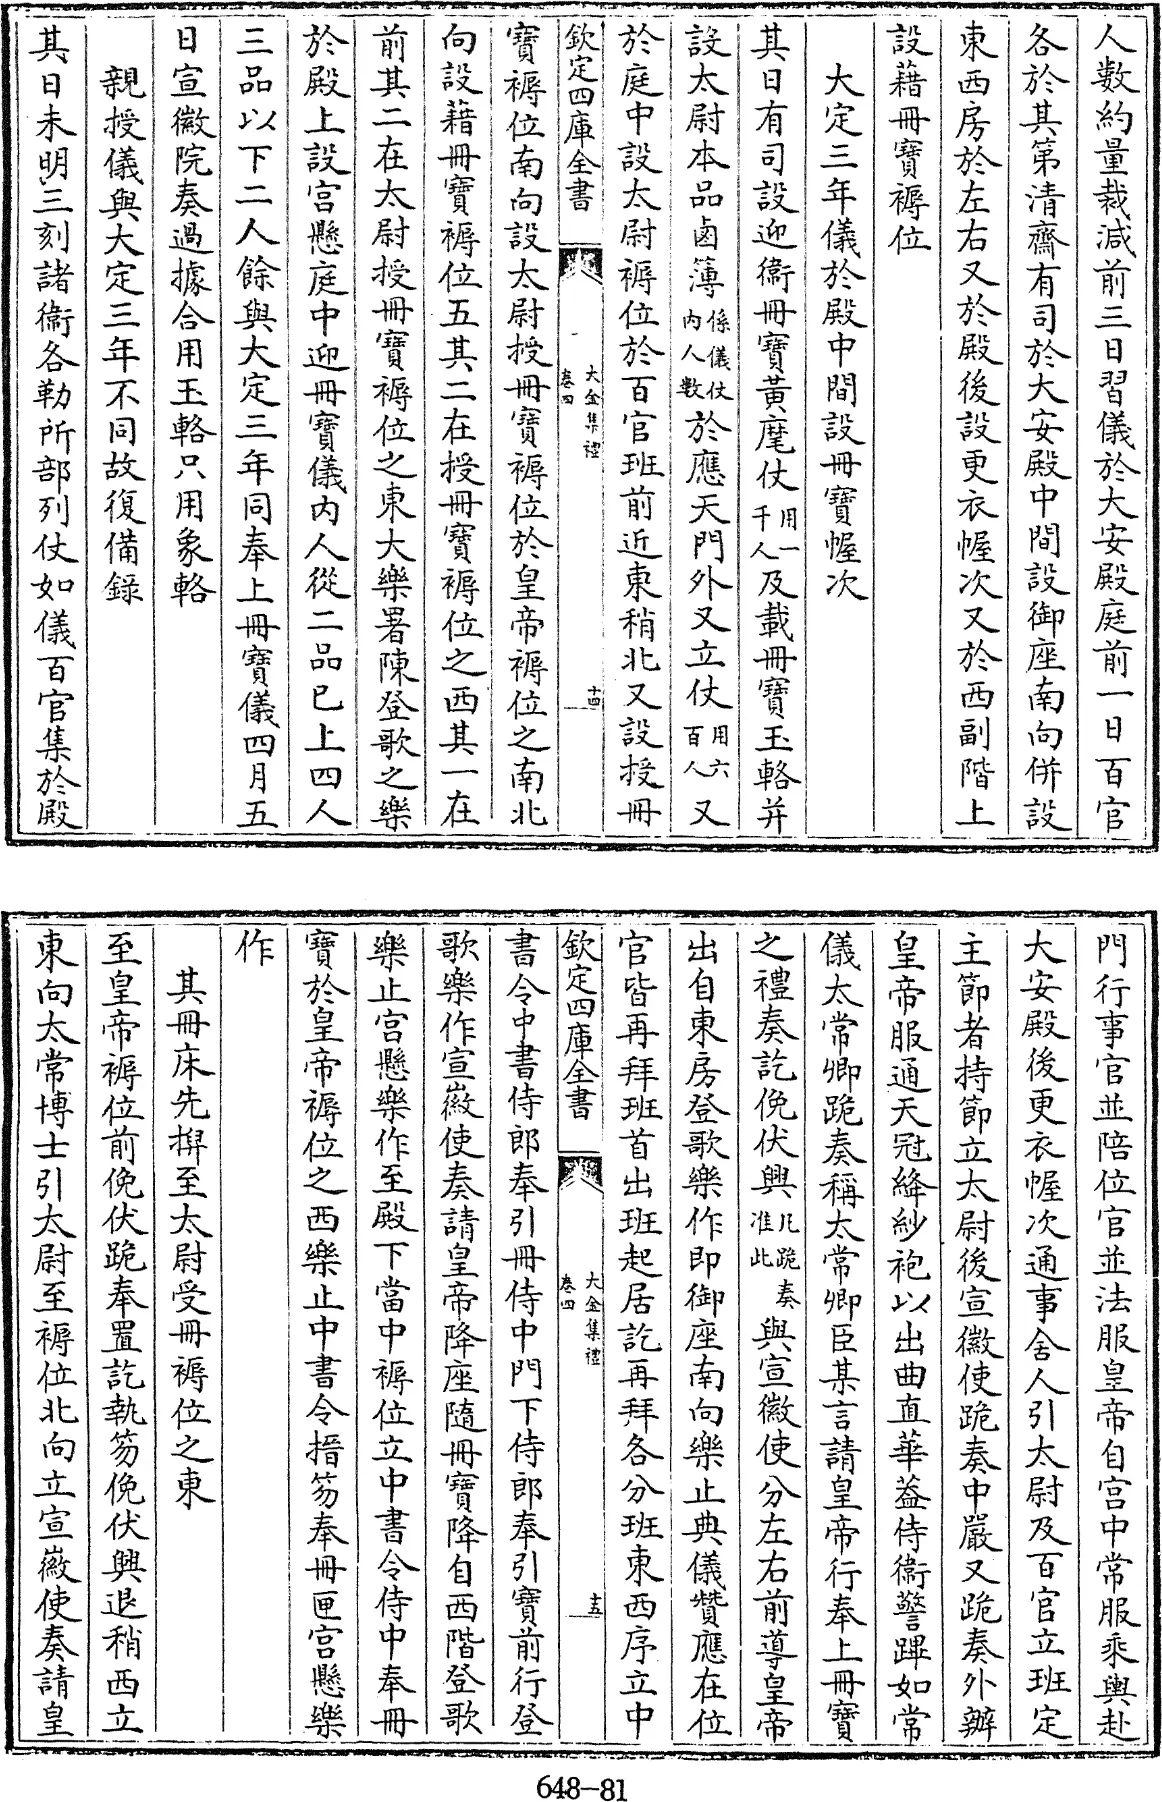 人數約量裁減前三日習儀於大安殿庭前一日百官
各於其第清齋有司於大安殿中間設御座南向併設
東西房於左右又於殿後設更衣幄次又於西副階上
設藉冊寶褥位
大定三年儀於殿中間設冊寶幄次
其日有司設迎衞冊寶黃麾仗用一千人及載冊寶玉輅并
設太尉本品鹵簿係儀仗內人數於應天門外又立仗用六百人又
於庭中設太尉褥位於百官班前近東稍北又設授冊
欽定四庫全書
大金集禮
卷四
十四
寶褥位南向設太尉授冊寶褥位於皇帝褥位之南北
向設藉冊寶褥位五其二在授冊寶褥位之西其一在
前其二在太尉授冊寶褥位之東大樂署陳登歌之樂
於殿上設宮懸庭中迎冊寶儀內人從二品已上四人
三品以下二人餘與大定三年同奉上冊寶儀四月五
日宣徽院奏過據合用玉輅只用象輅
親授儀與大定三年不同故復備錄
其日未明三刻諸衞各勒所部列仗如儀百官集於殿
門行事官並陪位官並法服皇帝自宮中常服乘輿赴
大安殿後更衣幄次通事舍人引太尉及百官立班定
主節者持節立太尉後宣徽使跪奏中嚴又跪奏外辦
皇帝服通天冠絳紗袍以出曲直華蓋侍衞警蹕如常
儀太常卿跪奏稱太常卿臣某言請皇帝行奉上冊寶
之禮奏訖俛伏興凡跪奏准此與宣徽使分左右前導皇帝
出自東房登歌樂作即御座南向樂止典儀贊應在位
官皆再拜班首出班起居訖再拜各分班東西序立中
欽定四庫全書
大金集禮
卷四
十五
書令中書侍郎奉引冊侍中門下侍郎奉引寶前行登
歌樂作宣徽使奏請皇帝降座隨冊寶降自西階登歌
樂止宮懸樂作至殿下當中褥位立中書令侍中奉冊
寶於皇帝褥位之西樂止中書令搢笏奉冊匣宮懸樂
作
其冊床先捧至太尉受冊褥位之東
至皇帝褥位前俛伏跪奉置訖執笏俛伏興退稍西立
東向太常博士引太尉至褥位北向立宣徽使奏請皇
648-81